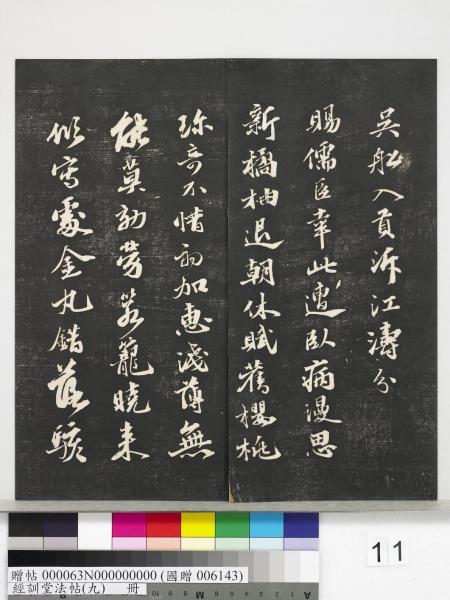 吳船入貢泝江濤分
賜儒臣幸此遭臥病漫思
新橘柚退朝休賦舊櫻桃
珎奇不惜初加惠淺薄無
能莫効勞筠籠曉来
似寫處金丸錯落駭
11
贈帖 000063N000000000 (國贈 006143)
經訓堂法帖(九) 冊